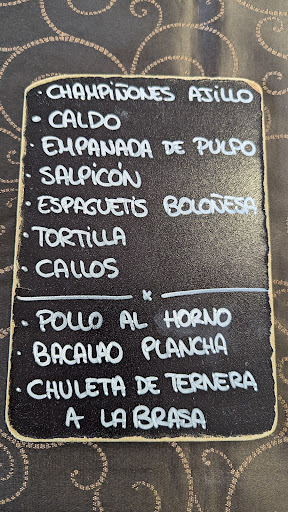 · CHAMPIÑONES AJILLO
· CALDO
· EMPANADA DE PULPO
· SALPICÓN
· ESPAGUETIS BOLOÑESA
· TORTILLA
· CALLOS
x
· POLLO AL HORNO
· BACALAO PLANCHA
· CHULETA DE TERNERA
A LA BRASA